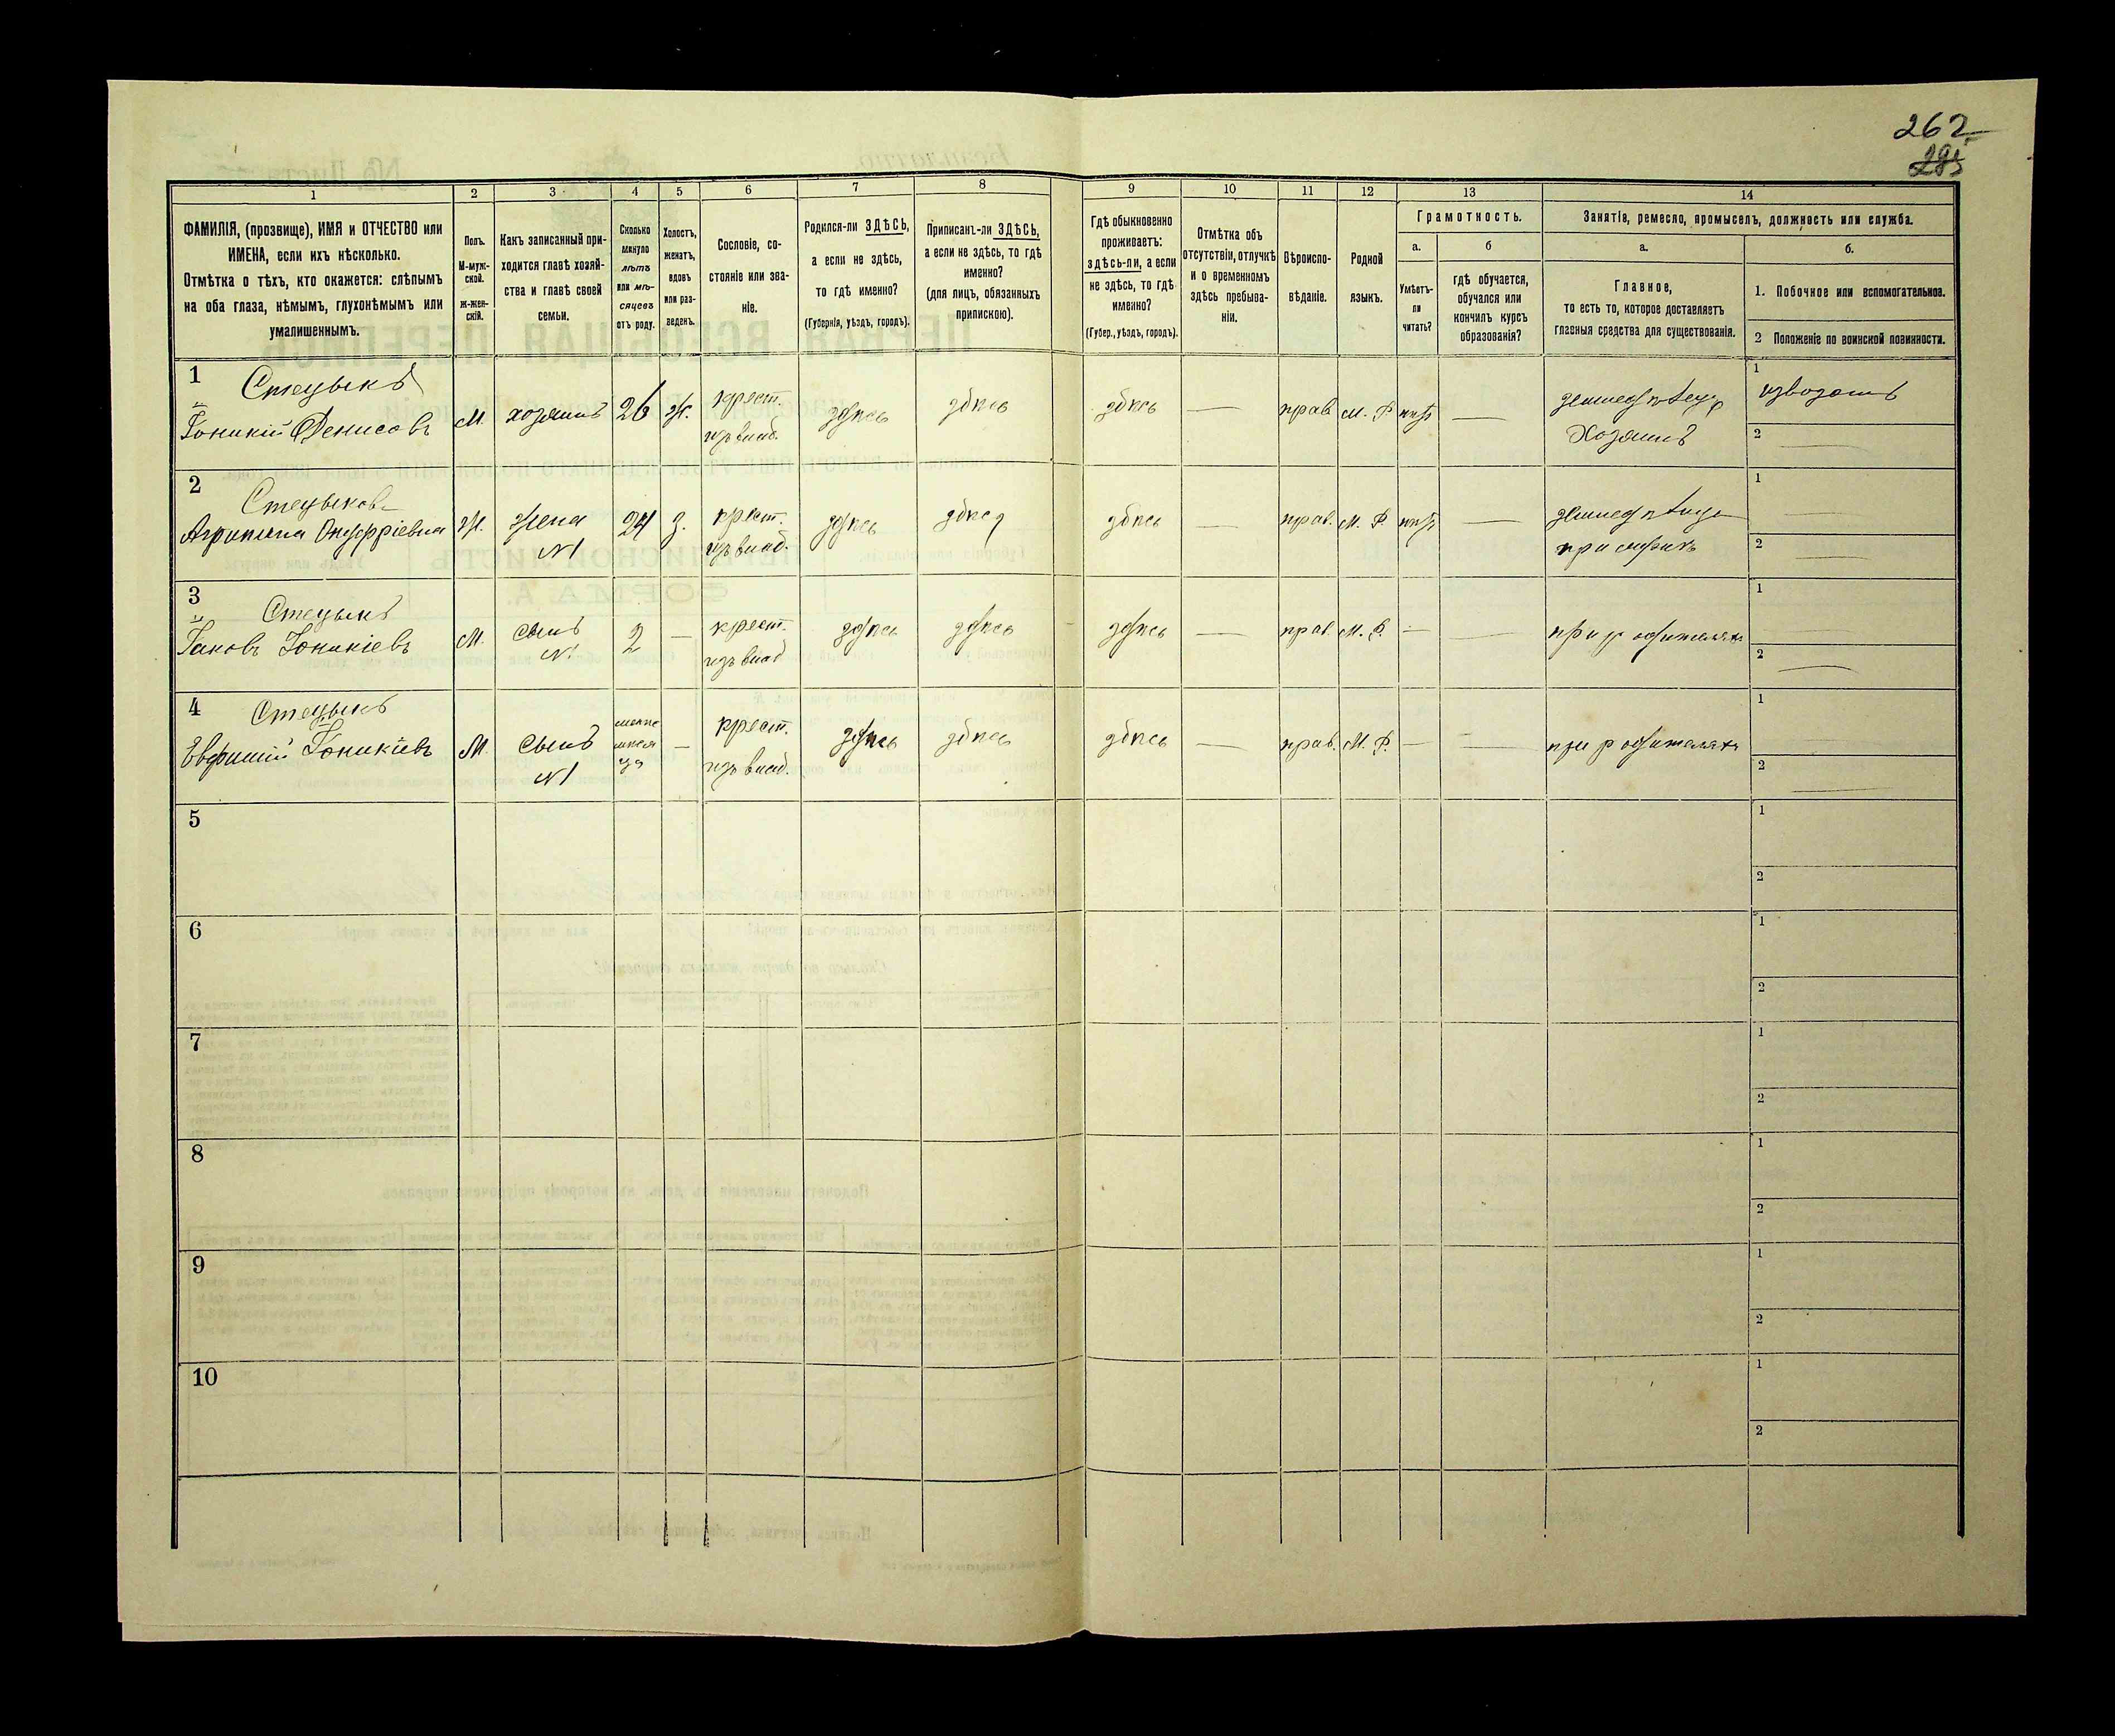 262
285
1
2
3
4
5
6
7
8
9
10
11
12
13
14
ФАМИЛІЯ, (прозвище), ИМЯ и ОТЧЕСТВО или
ИМЕНА, если ихъ нѣсколько.
Отмѣтка о тѣхъ, кто окажется: слѣпымъ
на оба глаза, нѣмымъ, глухонѣмымъ или
умалишеннымъ.
Полъ.
М-муж-
ской.
ж-жен-
скій.
Какъ записанный при-
ходится главѣ хозяй-
ства и главѣ своей
семьи.
Сколько
минуло
лѣтъ
или мѣ-
сяцевъ
отъ роду.
Холостъ,
женатъ,
вдовъ
или раз-
веденъ.
Сословіе, со-
стояніе или зва-
ніе.
Родился-ли ЗДѢСЬ,
а если не здѣсь,
то гдѣ именно?
(Губернія, уѣздъ, городъ).
Приписанъ-ли ЗДѢСЬ,
а если не здѣсь, то гдѣ
именно?
(для лицъ, обязанныхъ
припискою).
Гдѣ обыкновенно
проживаетъ:
здѣсь-ли, а если
не здѣсь, то гдѣ
именно?
(Губер., уѣздъ, городъ).
Отмѣтка объ
отсутствіи, отлучкѣ
и о временномъ
здѣсь пребыва-
ніи.
Вѣроиспо-
вѣданіе.
Родной
языкъ.
Грамотность.
а.
Умѣетъ-
ли
читать?
б
гдѣ обучается,
обучался или
кончилъ курсъ
образованія?
Занятія, ремесло, промыселъ, должность или служба.
а.
Главное,
то есть то, которое доставляетъ
главныя средства для существованія.
б.
1. Побочное или вспомогательное.
2 Положеніе по воинской повинности.
1
Стецыкъ
Іоникій Денисовъ
М.
хозяинъ
26
ж.
крест.
изъ влад.
здѣсь
здѣсь
здѣсь
—
прав.
М. Р.
нѣтъ
—
Хозяинъ
1
извозомъ
2
—
2
Агрипина Онуфріевна
Ж.
жена
N1
24
з.
крест.
изъ влад.
здѣсь
здѣсь
здѣсь
—
прав.
М. Р.
нѣтъ
—
при мужѣ
1
—
2
—
3
Стецыкъ
Іаковъ Іоникіевъ
М.
сынъ
N1
2
—
крест.
изъ влад.
здѣсь
здѣсь
здѣсь
—
прав.
М. Р.
—
—
при родителяхъ
1
2
—
4
Стецыкъ
Евфимій Іоникіевъ
М.
сынъ
N1
—
крест.
изъ влад.
здѣсь
здѣсь
здѣсь
—
прав.
М. Р.
—
—
при родителяхъ
1
2
—
5
1
2
6
1
2
7
1
2
8
1
2
9
1
2
10
1
2